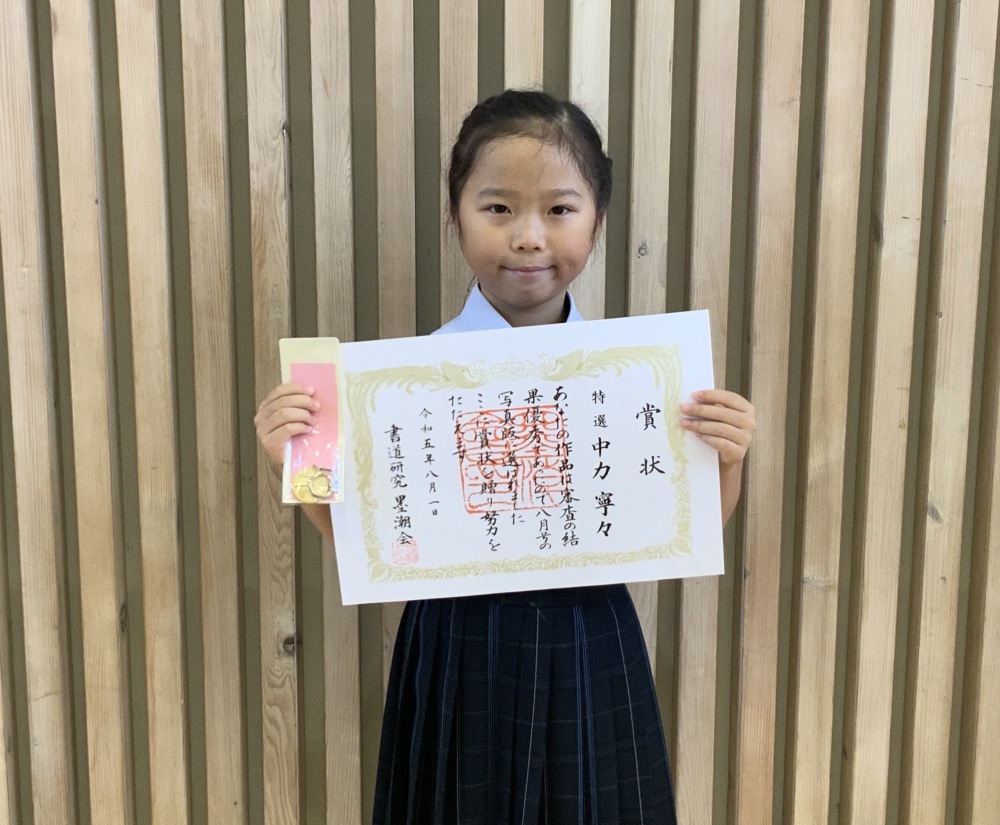 賞状
特選 中力 寧々
あなたの作品は審査の結
果優秀であったので八月号の
写真版に選ばれました
ここに賞状を贈り努力を
たたえます
令和五年八月一日
書道研究 墨潮会